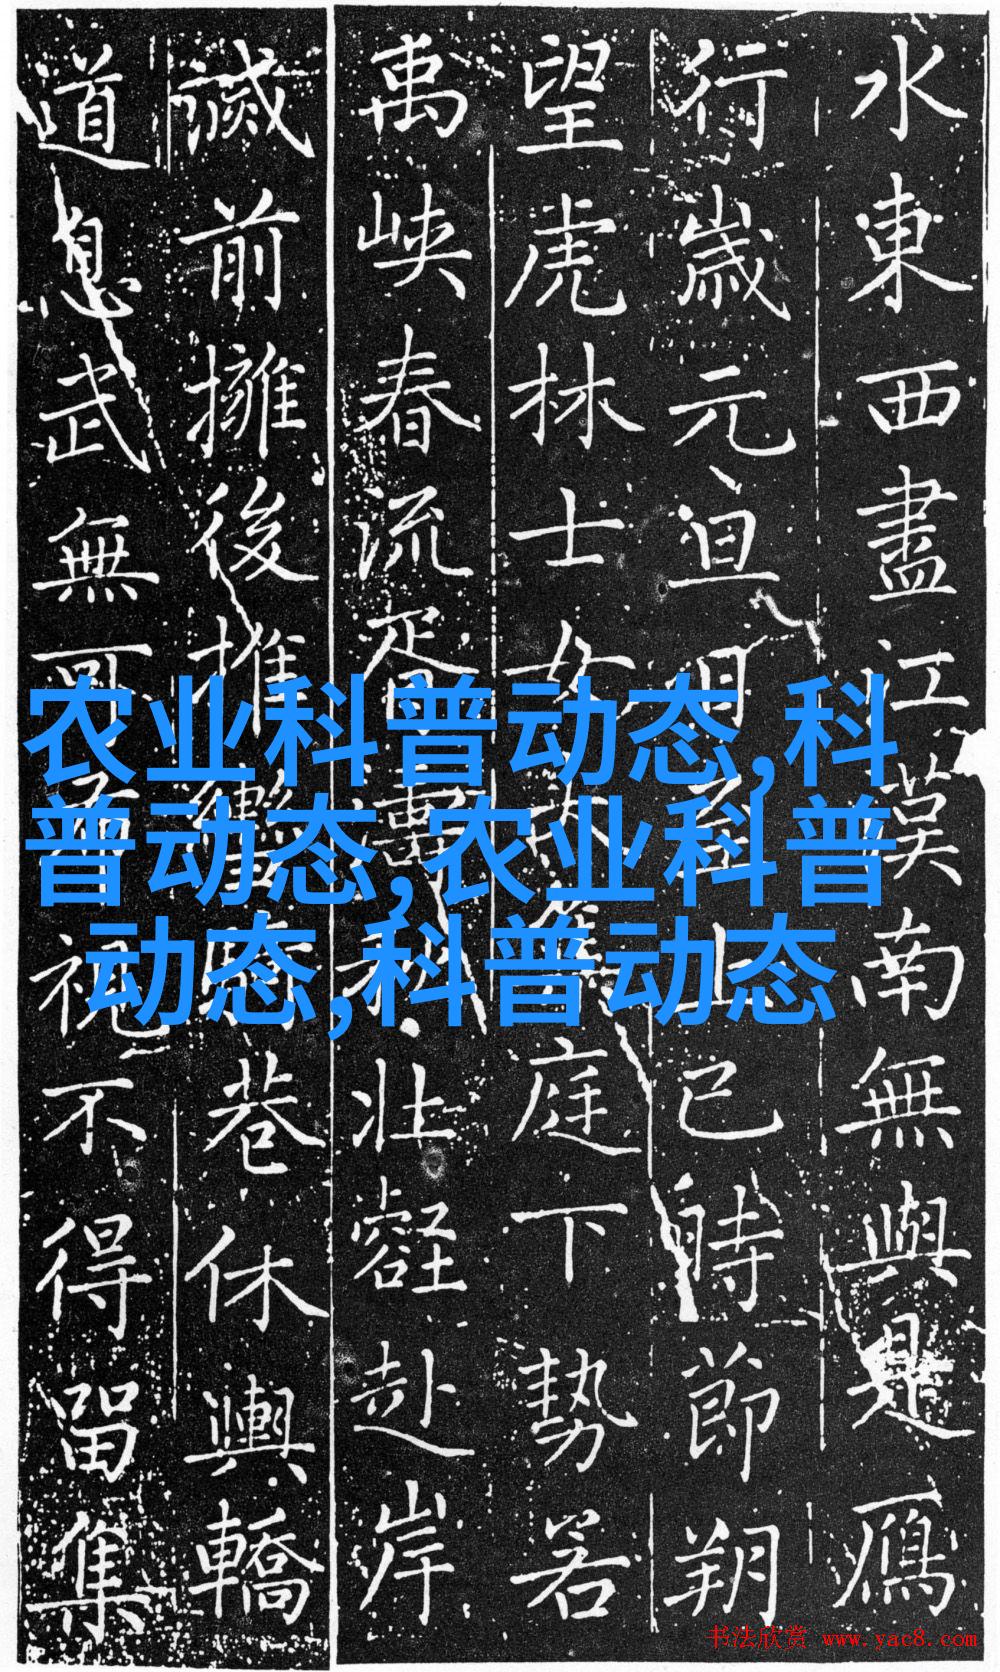 水東西盡江漢南無與是鴈
行歲元旦上已時節朔
望虎林士女庭下勢若
禹峽春流壯壑赴岸
前擁後推巷休輿轎
道息武無視不得留集
农业科普动态,科
普动态,农业科普
动态,科普动态
书法欣赏 www.yac8.com